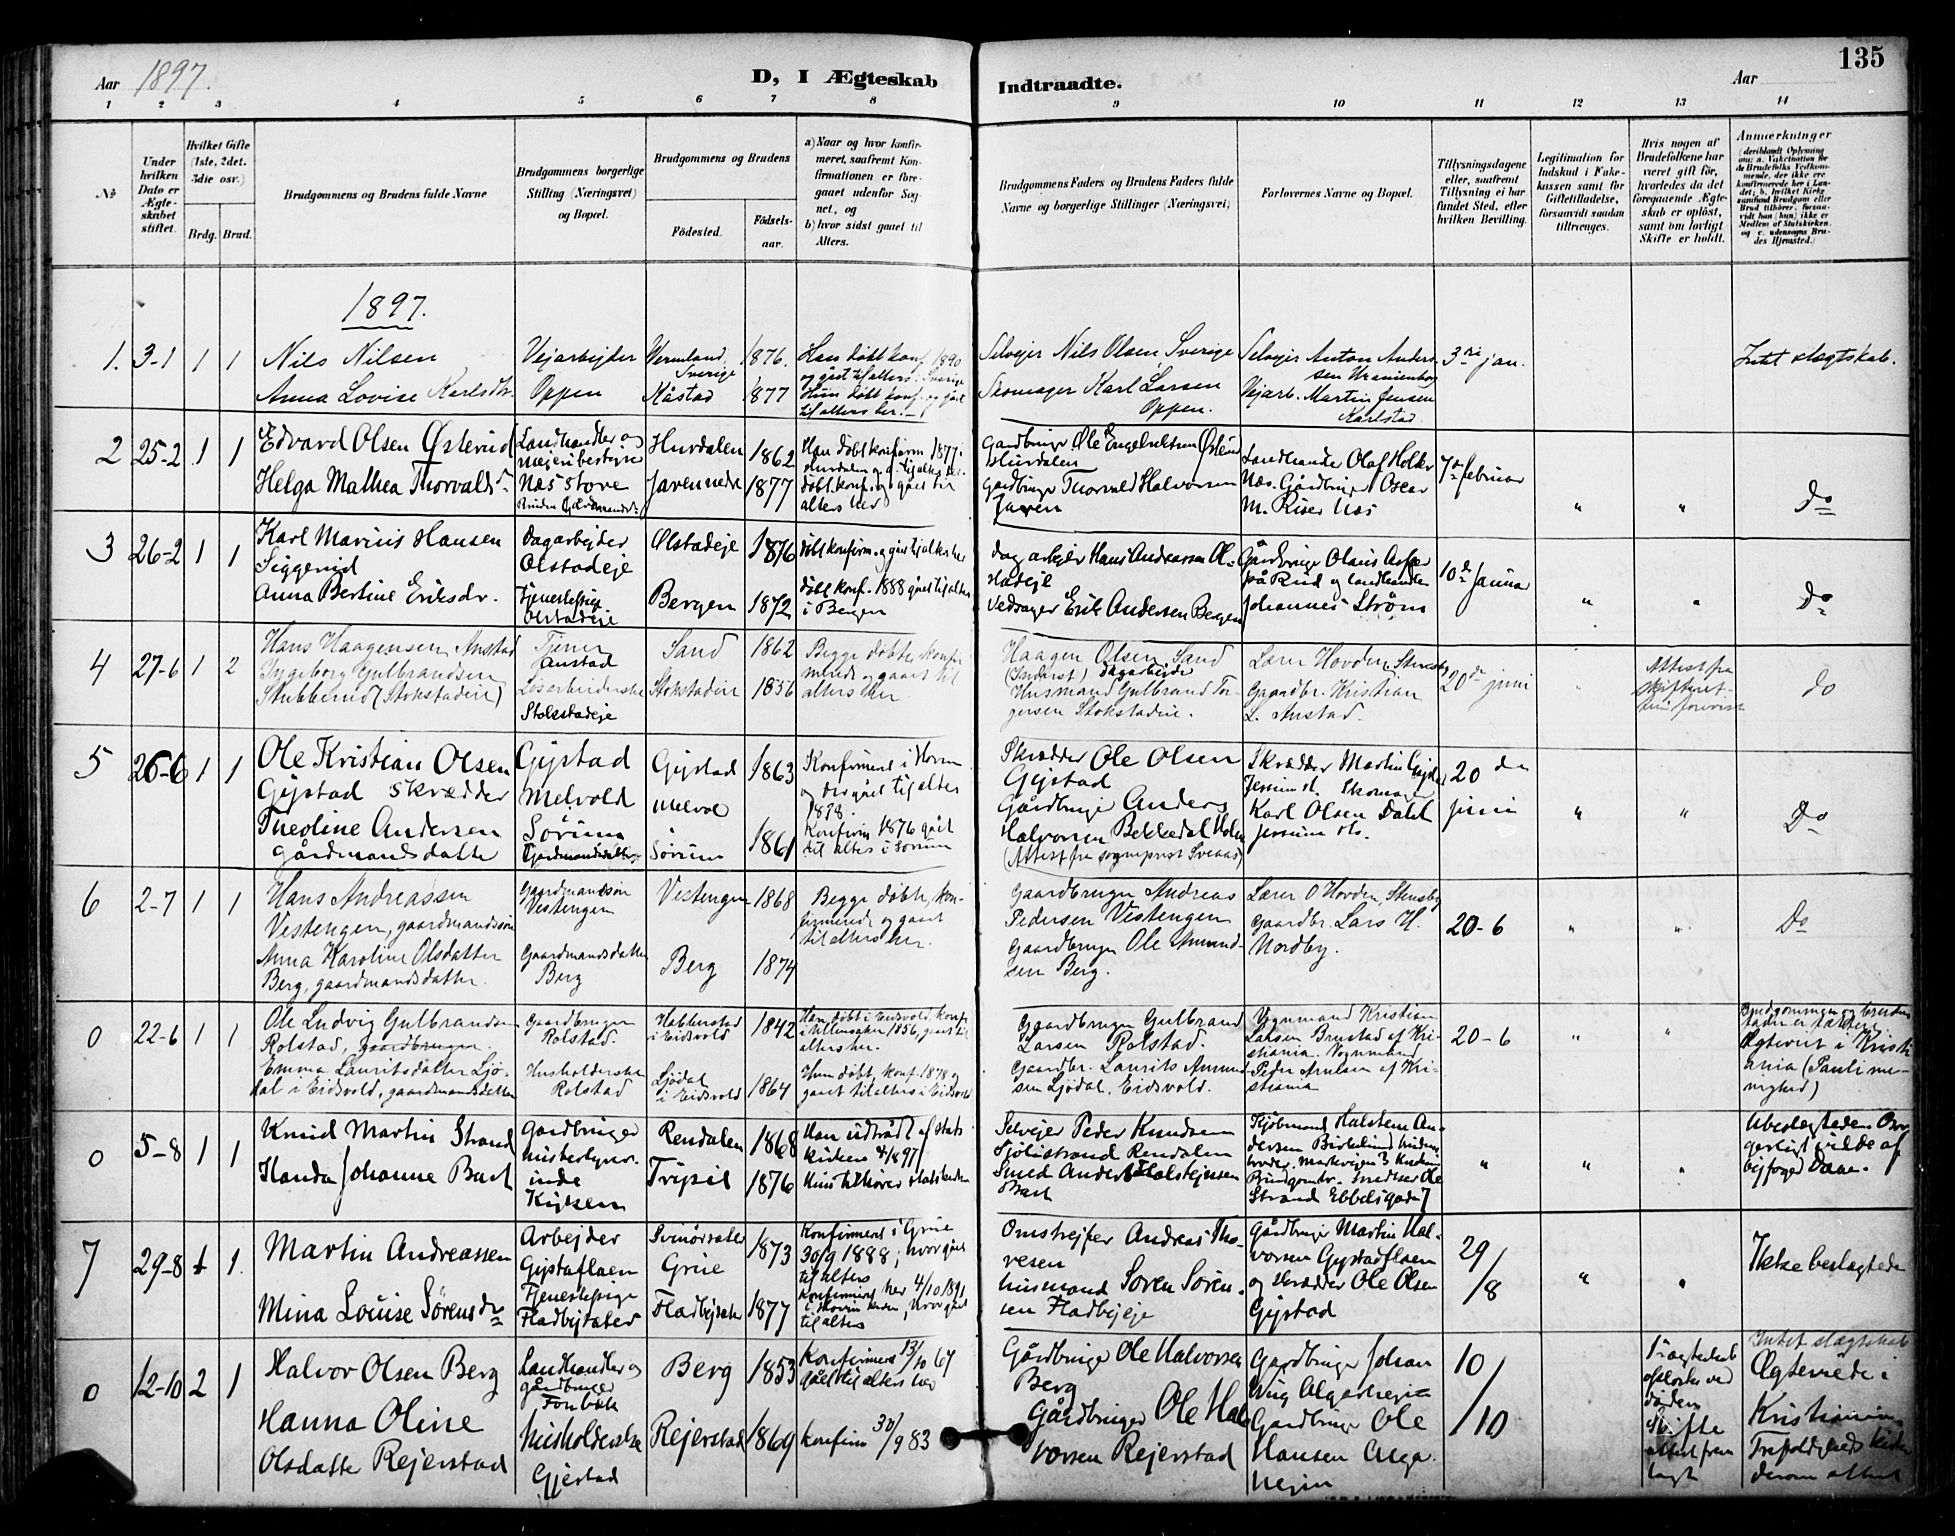 135
Aar 1897.
D, I Ægteskab Indtraadte.
Aar
1 2 3 4 5 6 7 8 9 10 11 12 13 14
No
Under hvilken Dato er Ægteskabet stiftet.
Hvilket Gifte (1ste, 2det, 3die osv.)
Brdg. Brud.
Brudgommens og Brudens fulde Navne
Brudgommens borgerlige Stilling (Næringsvei) og Bopæl.
Brudgommens og Brudens
Födested.
Födselsaar.
a) Naar og hvor konfirmeret, saafremt Konfirmationen er foregaaet udenfor Sognet, og
b) hvor sidst gaaet til Alters.
Brudgommens Faders og Brudens Faders fulde Navne og borgerlige Stillinger (Næringsvei)
Forlovernes Navne og Bopæl.
Tillysningsdagene eller, saafremt Tillysning ei har fundet Sted, efter hvilken Bevilling.
Legitimation for Indskud i Enkekassen samt for Giftetilladelse, forsaavidt saadan tiltrænges.
Hvis nogen af Brudefolkene har været gift för, hvorledes da det foregaaende Ægteskab er oplöst, samt om lovligt Skifte er holdt.
Anmærkninger
1897.
1. 3-1 1 1
Nils Nilsen
Anna Lovise Karlsdtr.
Vejarbejder
Oppen
Vermland, Sverige
Kåstad
1876.
1877
Han døbt konf. 1890
og gået til alters i Sverige
Hun døbt konf. og gået
til alters her.
Selvejer Nils Olsen, Sverige
Skomager Karl Larsen
Oppen.
Selvejer Anton Andersen Uranienborg
Vejarb. Martin Jensen
Karlstad
3die jan.
Intet slægtskab.
2 25-2 1 1
Edvard Olsen Østerud
Helga Mathea Thorvaldsdr
Landhandler og
mejeribestyrer
Næs store
Hurdalen
1862
1877
Han døbt konfirm 1877
døbt konf. og gået til
alters her
Gardbruger Ole Engebretsen Østerud
Hurdalen
Gardbruger Thorvald Halvorsen
Jaren
Landhandler Olaf Holter
Næs. Gårdbruger Oscar
M. Riser Næs
7de februar
" " Do
3 26-2 1 1
Karl Marius Hansen
Siggerud
Anna Bertine Eriksdr.
Dagarbejder
Olstadeje
Tjenestepige
Olstadeje
Ølstadeje
Bergen
1876
1872
døbt konfirm. og gået til alters her
døbt konf. 1888 gået til alters
i Bergen
Dagarbejder Hans Andreasen Olstadeje
Vedsager Erik Andersen Bergen
på Rud og landhandler
Johannes Strøm
10de Januar
" " Do
4 27-6 1 2
Hans Haagensen Anstad
Ingeborg Gulbrandsen
Stubberud (Stokstadeie)
Tjener
Anstad
Løsarbeiderske
Stokstadeje
Sand
Stokstadeie
1862
1856
Begge døbte, konfirmerede og gaaet til
alters her.
Haagen Olsen Sand
dagarbejder
Husmand Gulbrand Torgersen Stokstadeie.
Lærer Hovden, Stensby
Gaardbr. Kristian
L. Anstad.
20de juni
Attest fra
skifteret-
ten forevist
do
5 26-6 1 1
Ole Kristian Olsen
Gjystad skrædder
Theoline Andersen
gårdmandsdatter
Gjystad
Melvold
Sørum
Gårdmandsdatter
Gjystad
Melvol
Sørum
1863
1861
Konfirmeret i Hovin
og der gået til alters
1878.
Konfirm 1876 gået
til alters i Sørum
Skrædder Ole Olsen
Gjystad
Gårdbruger Anders
Halvorsen Bekkedal Holm
(Attest fra sogneprest Sveaas)
Skrædder Martin Gjyst
Jessum st. Skomager
Karl Olsen Dalet
Jessum st.
20de
juni
" " Do
6 2-7 1 1
Hans Andreassen
Vestengen, gaardmandssøn
Anna Karoline Olsdatter
Berg, gaardmandsdatter.
Gaardmandssøn
Vestengen
Gaardmandsdatter
Berg
Vestengen
Berg
1868
1874
Begge døbte, konfirmerede og gaaet
til alters her.
Gaardbruger Andreas
Pedersen Vestengen
Gaardbruger Ole Amundsen Berg.
Lærer O Hovden, Stensby
Gaardbr. Lars H.
Nordby.
20-6
" " Do
0 22-6 1 1
Ole Ludvig Gulbrandsen
Rolstad, gaardbruger.
Emma Lauritsdatter Ljødal i Eidsvold, gaardmandsdatter
Gaardbruger
Rolstad.
Husholderske
Rolstad
Habberstad
i Eidsvold
Ljødal
i Eidsvold
1842
1864
Han døbt i Eidsvold, konf.
i Ullensaker 1856, gaaet til
alters her.
Hun døbt, konf. 1878 og
gaaet til alters i Eidsvold
Gaardbruger Gulbrand
Larsen Rolstad.
Gaardbr. Laurits Amundsen Ljødal, Eidsvold.
Vognmand Kristian
Larsen Brustad af Kristiania. Vognmand
Peder Paulsen af Kristiania
20-6
" "
Brudgommen og brudens
fader er fættere.
Ægteviet i Kristiania (Pauli menighed)
0 5-8 1 1
Knud Martin Strand
Handa Johanne Bart
Gardbruger
husbestyrerinde
Rendalen
Trysil
1868
1876
Han udtrådt af statskirken 4/8 97
Hun tilhører statskirken
Selvejer Peder Knudsen
Sjölistrand Rendalen
Smed Anders Halstensen
Bart
Kjøbmand Halsten Andersen Birkelund
Strand Ebbelsgade 7
" " "
Ubeslægtede. Borgerligt viede af
byfoged Daae.
7 29-8 1 1.
Martin Andreassen
Mina Louise Sørensdr
Arbejder
Gjystaflaen
Tjenestepige
Fladbyseter
Svinørseter
Grue
Fladbyseter
1873
1877
Konfirmeret i Grue
30/9 1888; hvor gået
til alters
Konfirmeret her 4/10 1891
i Hovin kirken, hvor gået
til alters
Omstrejfer Andreas Thovesen
husmand Søren Sørensen Fladbyeje
Gårdbruger Martin Halvorsen Gjystadflaen
og skrædder Ole Olsen
Gjystad
29/8
" "
Ikke beslægtede
0 12-10 2 1
Halvor Olsen Berg
Hanna Oline
Olsdatter Rejerstad
Landhandler og
gårdbruger
Fonbæk
Husholderske
Gjestad
Berg
Rejerstad
1853
1869
Konfirmeret 13/10 67
gået til alters her
konfirm 30/9 83
Gårdbruger Ole Halvorsen
Berg
Gårdbruger Ole Halvorsen Rejerstad
Gardbruger Johan
Wiig Algarhejm
Gardbruger Ole
Hansen Alga
hejm
10/10
1. ægteskab
opløst ved
døden
Skifte
attest frem
lagt
Intet slægtskab
Ægteviede i
Kristiania
Trefoldigheds kirke
derom attest